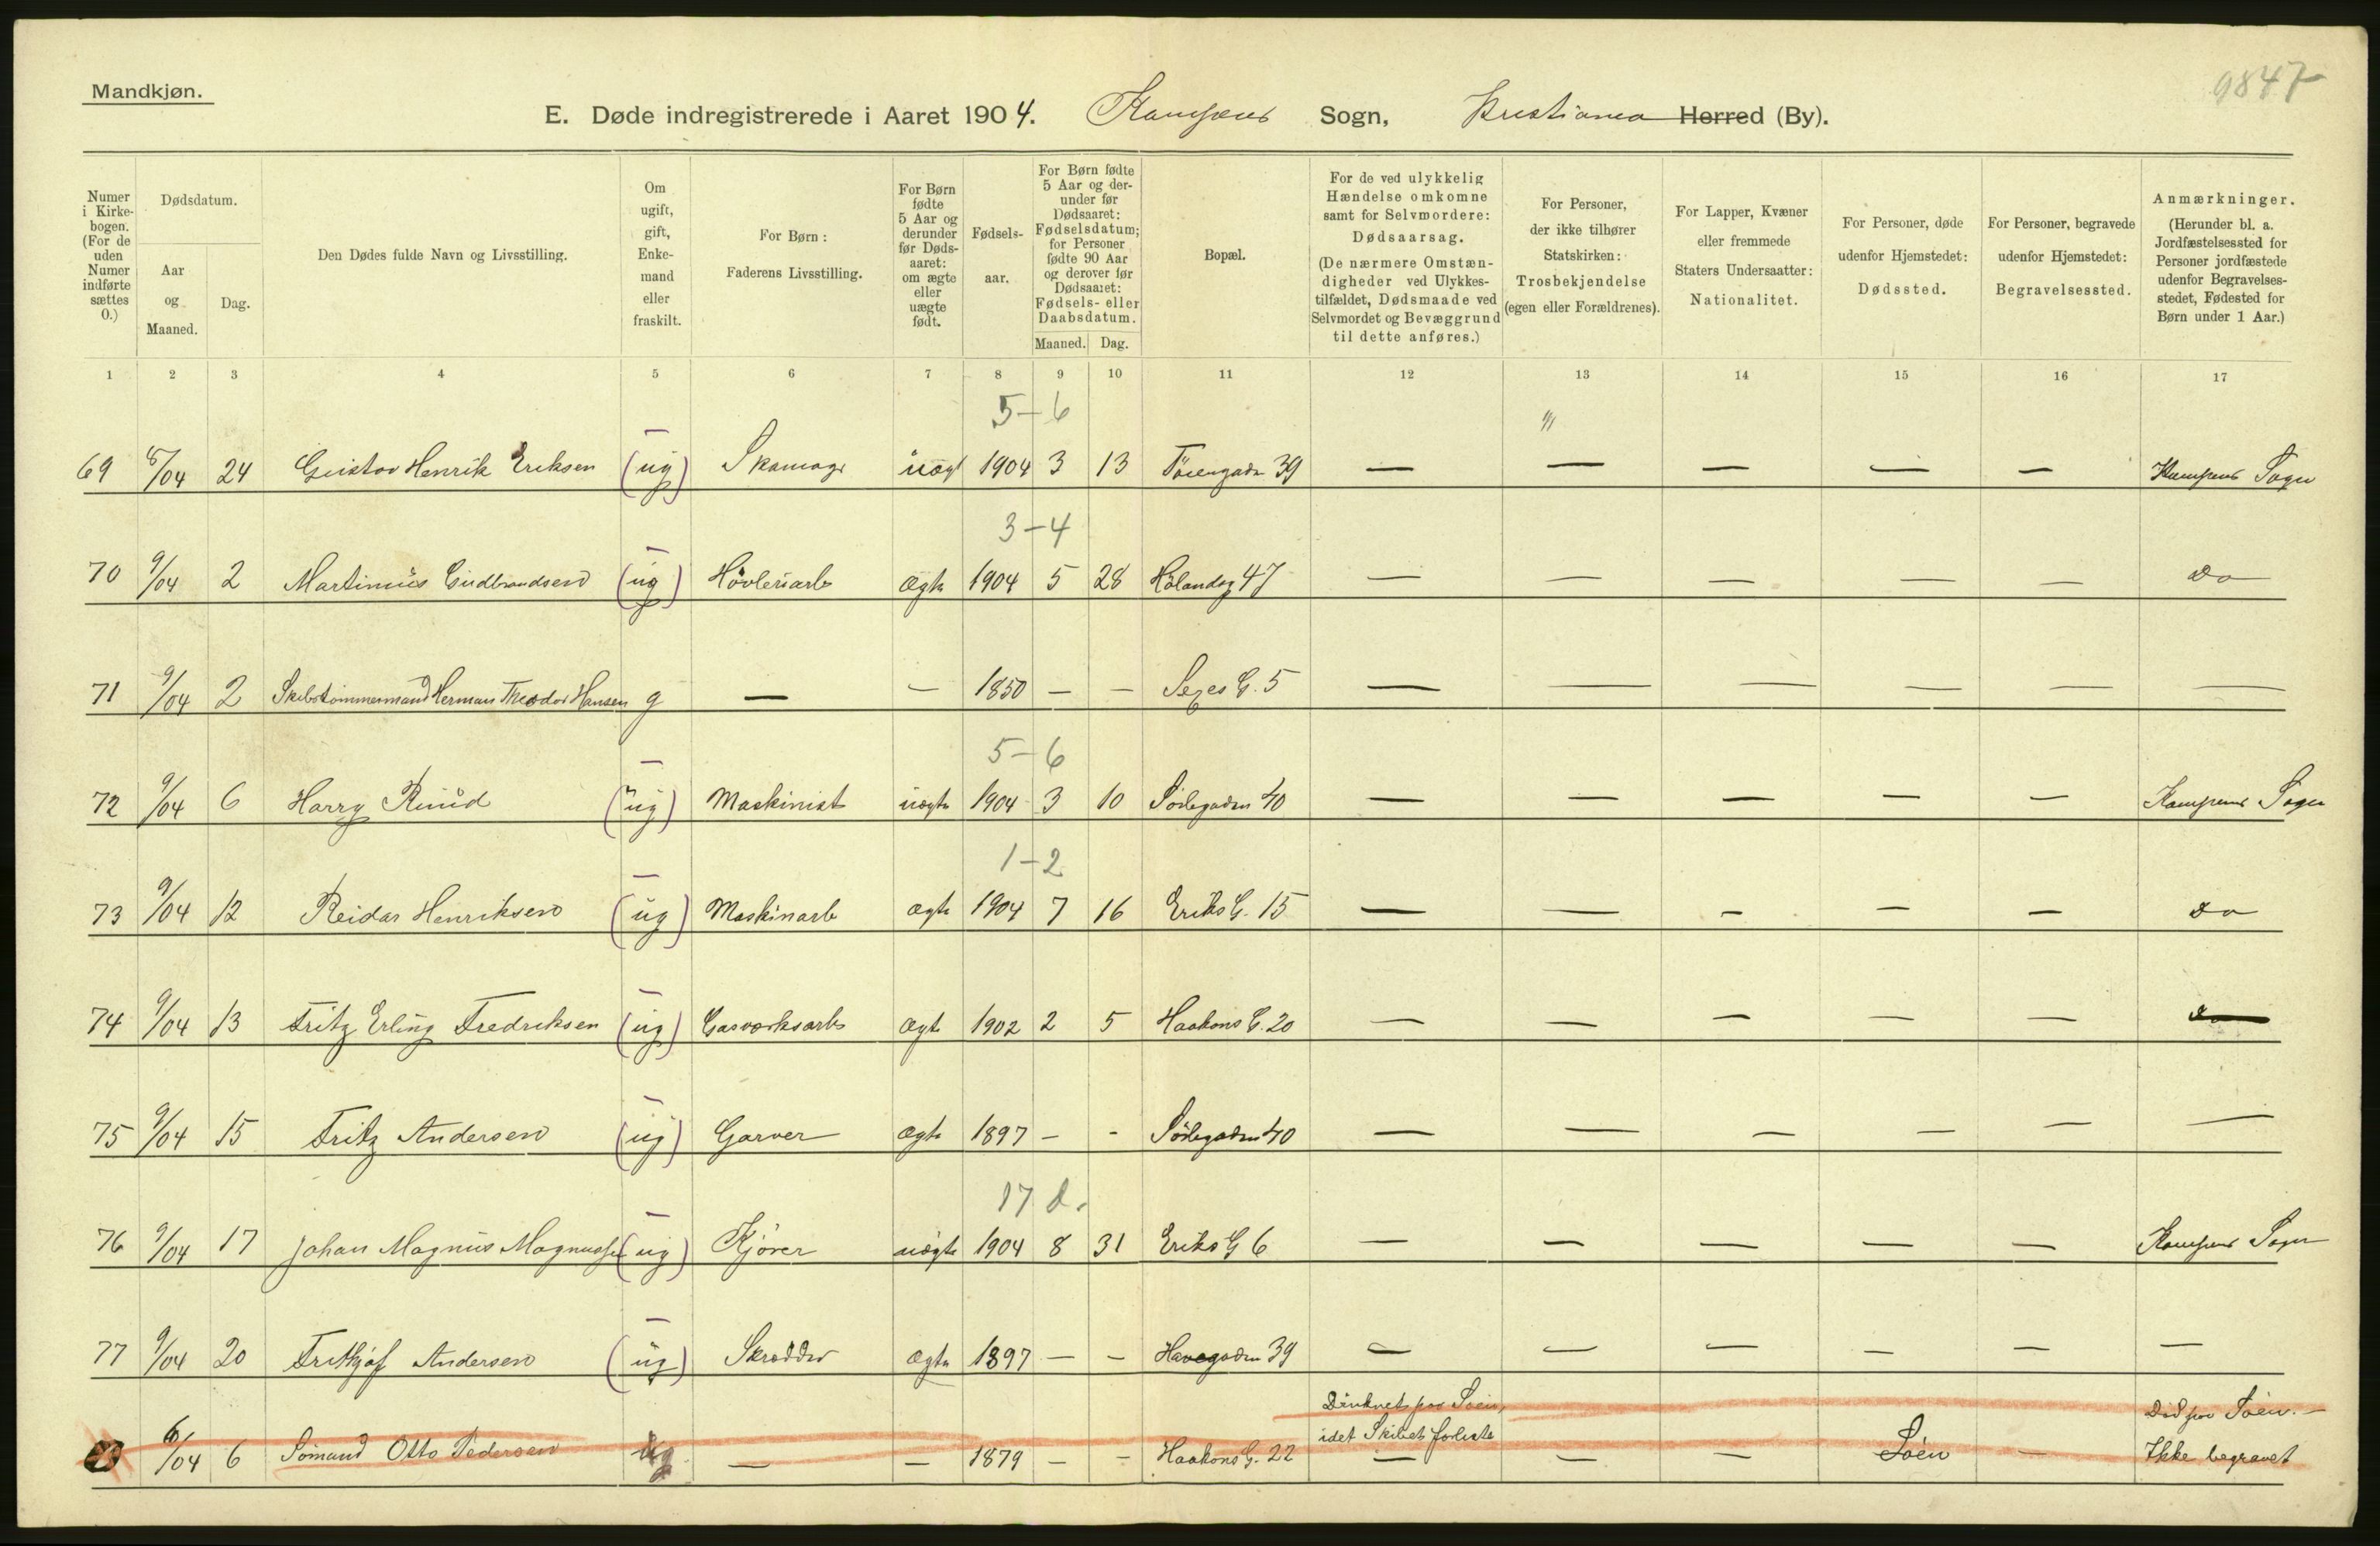 9847
Mandkjøn.
E. Døde indregistrerede i Aaret 1904. Kampens Sogn, Kristiania Herred (By).
Numer i Kirke-bogen. (For de uden Numer indførte sættes 0.)
Dødsdatum.
Aar og Maaned.
Dag.
Den Dødes fulde Navn og Livsstilling.
Om ugift, gift, Enke-mand eller fraskilt.
For Børn: Faderens Livsstilling.
For Børn fødte 5 Aar og derunder før Døds-aaret: om ægte eller uægte født.
Fødsels-aar.
For Børn fødte 5 Aar og der-under før Dødsaaret: Fødselsdatum; for Personer fødte 90 Aar og derover før Dødsaaret: Fødsels- eller Daabsdatum.
Maaned. Dag.
Bopæl.
For de ved ulykkelig Hændelse omkomne samt for Selvmordere: Dødsaarsag. (De nærmere Omstæn-digheder ved Ulykkes-tilfældet, Dødsmaade ved Selvmordet og Bevæggrund til dette anføres.)
For Personer, der ikke tilhører Statskirken: Trosbekjendelse (egen eller Forældrenes).
For Lapper, Kvæner eller fremmede Staters Undersaatter: Nationalitet.
For Personer, døde udenfor Hjemstedet: Dødssted.
For Personer, begravede udenfor Hjemstedet: Begravelsessted.
Anmærkninger. (Herunder bl. a. Jordfæstelsessted for Personer jordfæstede udenfor Begravelses-stedet, Fødested for Børn under 1 Aar.)
1 2 3 4 5 6 7 8 9 10 11 12 13 14 15 16 17
5-6
69 8/04 24 Gustav Henrik Eriksen (ug) Skomagr uægt 1904 3 13 Töiengaden 39 — — — — — Kampens Sogn
3-4
70 9/04 2 Martinius Gudbrandsen (ug) Hövleriarb ægte 1904 5 28 Hölandsg 47 — — — — — Do
71 9/04 2 Skibstömmermand Herman Theodor Hansen g — — 1850 — — Seges G. 5 — — — — — —
5-6
72 9/04 6 Harry Ruud (ug) Maskinist uægte 1904 3 10 Sörlegaden 40 — — — — — Kampens Sogn
1-2
73 9/04 12 Reidar Henriksen (ug) Maskinarb ægte 1904 7 16 Eriks G. 15 — — — — — Do
74 9/04 13 Fritz Erling Fredriksen (ug) Gasværksarb ægt 1902 2 5 Haakons G. 20 — — — — — Do
75 9/04 15 Fritz Andersen (ug) Garver ægte 1897 — - Sörlegaden 40 — — — — — —
17 d.
76 9/04 17 Johan Magnus Magnussen (ug) Kjörer uægte 1904 8 31 Eriks G 6 — — — — — Kampens Sogn
77 9/04 20 Frithjof Andersen (ug) Skrædder ægte 1897 — — Havegaden 39 — — — — — —
Druknet paa Söen, Död paa Söen. —
idet Skibet forliste
6/04 6 Sömand Otto Pedersen ug — — 1879 — — Haakons G. 22 — — — Söen — Ikke begravet